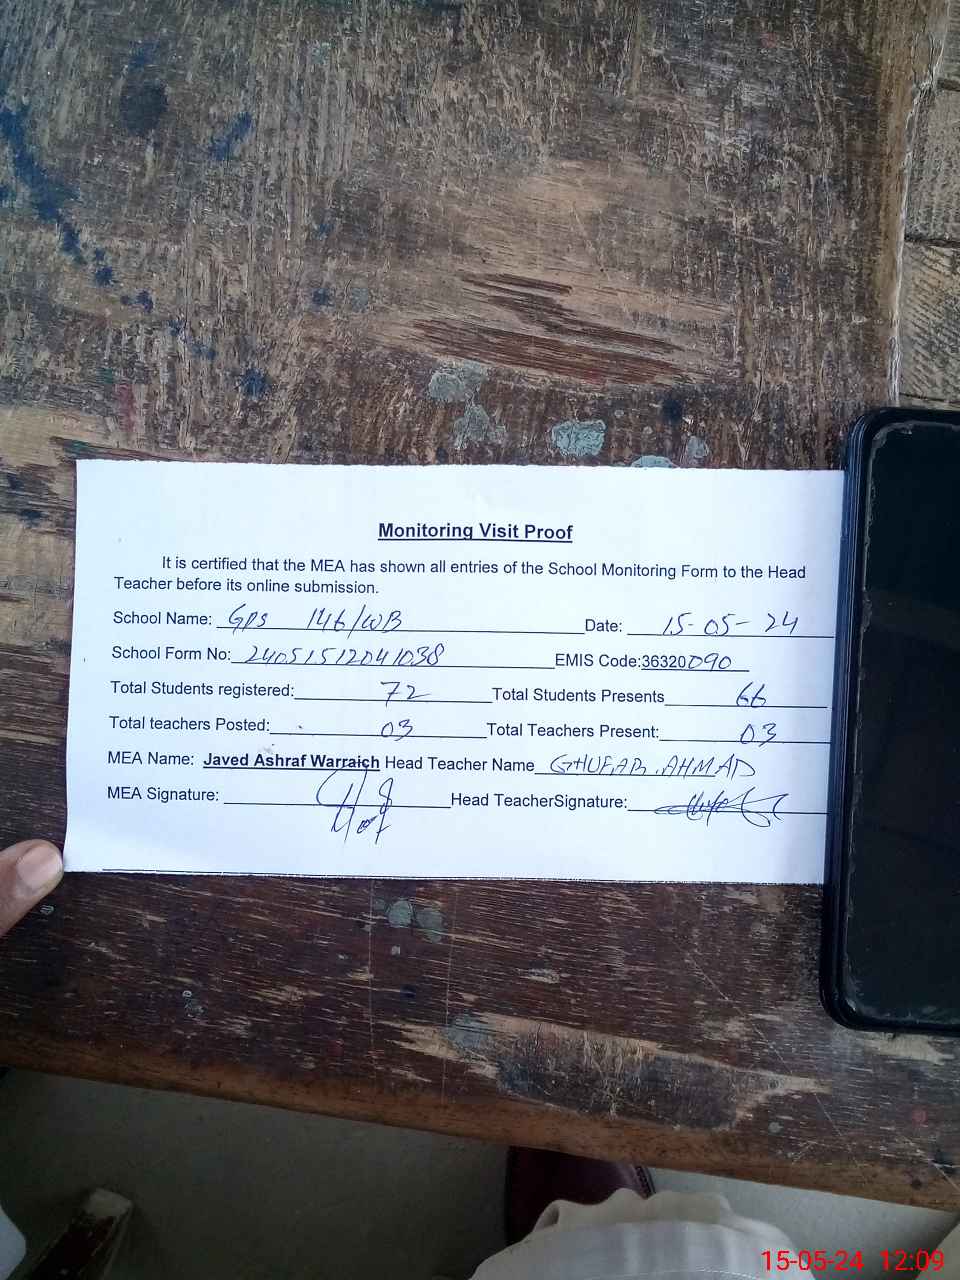 Monitoring Visit Proof
It is certified that the MEA has shown all entries of the School Monitoring Form to the Head
Teacher before its online submission.
School Name: GPS 146/WB Date: 15-05-24
School Form No: 24051512041038 EMIS Code:36320090
Total Students registered: 72 Total Students Presents 66
Total teachers Posted: 03 Total Teachers Present: 03
MEA Name: Javed Ashraf Warraich Head Teacher Name GHUFAR AHMAD
MEA Signature: Head TeacherSignature:
15-05-24 12:09